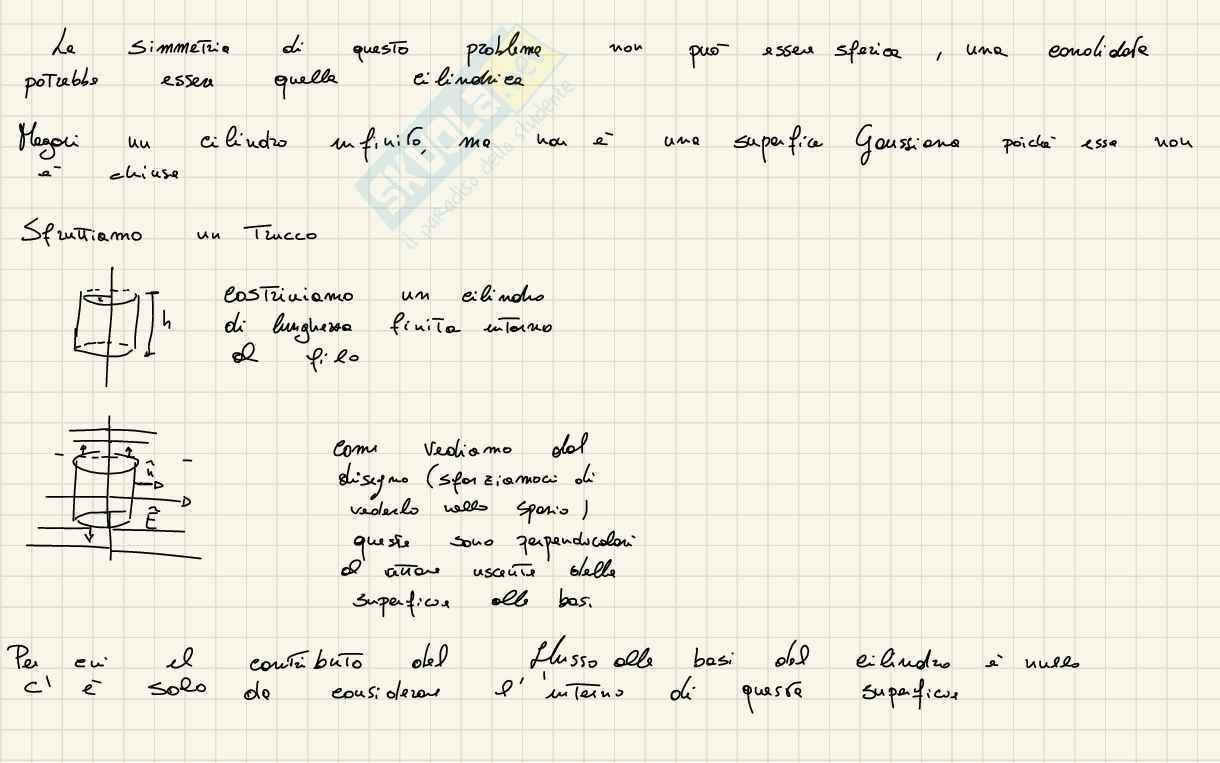 La simmetria di questo problema non può essere sferica, una candidata
potrebbe essere quella cilindrica
Magari un cilindro infinito, ma non è una superfice Gaussiana poiché essa non
è chiusa
Sfruttiamo un trucco
Costruiamo un cilindro
di lunghezza finita intorno
al filo
h
Come vediamo dal
disegno (sforziamoci di
vederlo nello spazio)
queste sono perpendicolari
al vettore uscente delle
superficie alle basi
n̂
E
Per cui il contributo del flusso alle basi del cilindro è nullo
C'è solo da considerare l'interno di questa superficie
SKUOLA.net
il paradiso dello studente